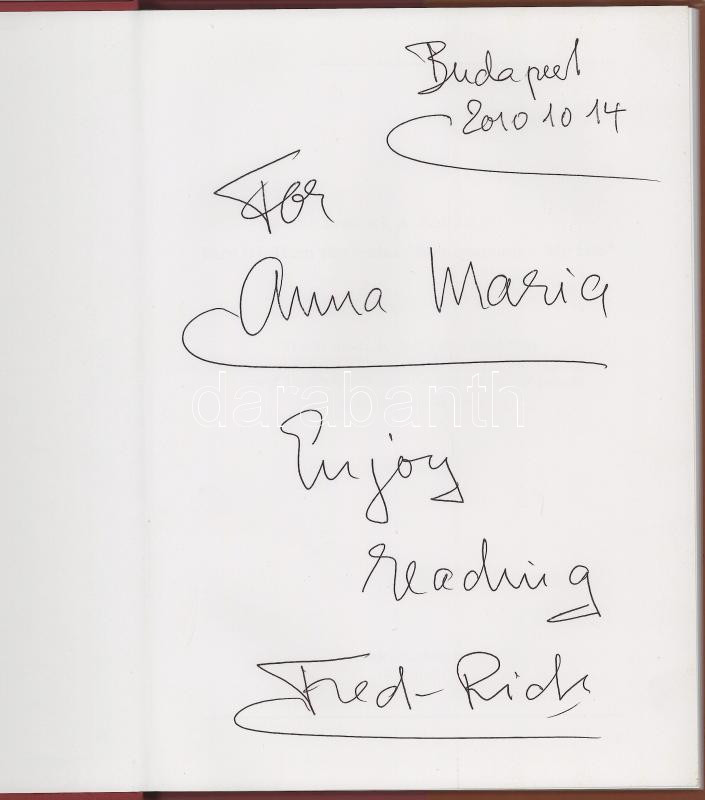 Budapest
2010 10 14
For
Anna Maria
darabanth
Enjoy
reading
Fred-Rick